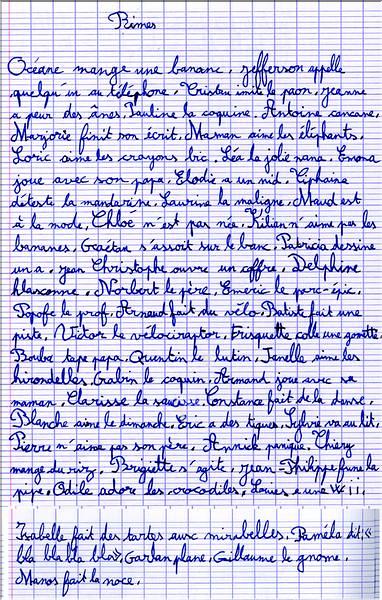 Rimes
Océane mange une banane. Jefferson appelle
quelqu'un au téléphone. Tristan imite le paon. Jeanne
a peur des ânes. Pauline la coquine. Antoine cancane.
Marjorie finit son écrit. Maman aime les éléphants.
Loric aime les crayons bic. Léa la jolie nana. Emma
joue avec son papa. Elodie a un nid. Tiphaine
déteste la mandarine. Laurine la maligne. Maud est
à la mode. Chloé n'est pas née. Kilian n'aime pas les
bananes. Gaétan s'assoit sur le banc. Patricia dessine
un a. Jean Christophe ouvre un coffre. Delphine
klaxonne. Norbert le père. Emeric le porc-épic.
Popofe le prof. Arnaud fait du vélo. Batiste fait une
piste. Victor le vélociraptor. Frisquette colle une gomette.
Bouba tape papa. Quentin le lutin. Fanelle aime les
hirondelles. Gabin le coquin. Armand joue avec sa
maman. Clarisse la saucisse. Constance fait de la danse.
Blanche aime le dimanche. Eric a des tiques. Sylvie va au lit.
Pierre n'aime pas son père. Annick panique. Thiery
mange du rizz. Brigiette s'agite. Jean-Philippe fume la
pipe. Odile adore les crocodiles. Louis a une Wii.
Isabelle fait des tartes aux mirabelles. Paméla dit «
bla bla bla bla». Garvan plane. Guillaume le gnome.
Manos fait la noce.